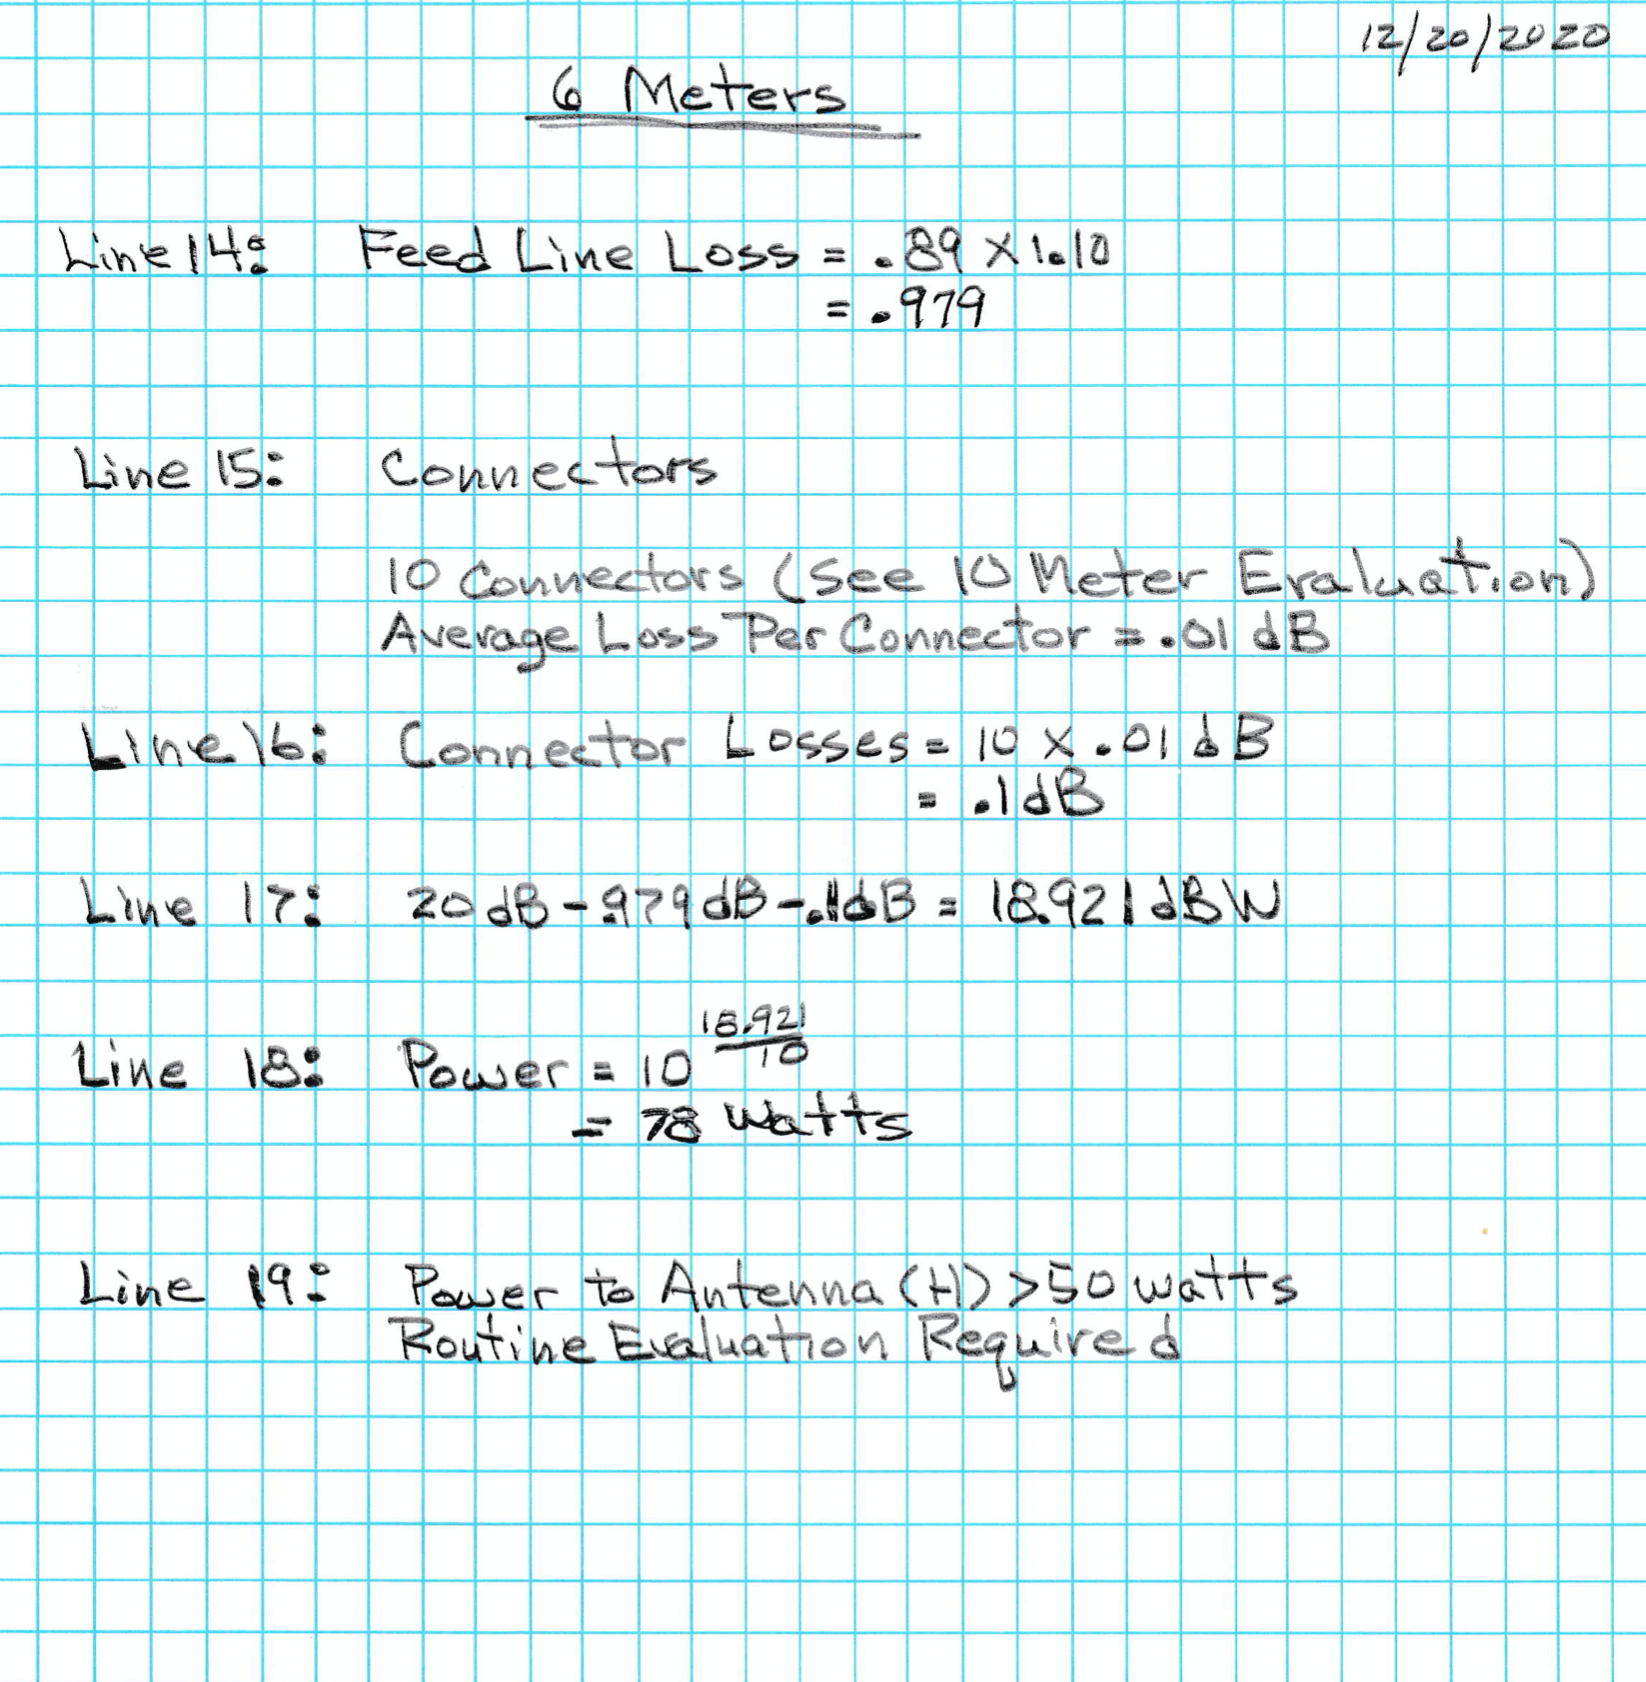 12/20/2020
6 Meters
Line 14: Feed Line Loss = .89 X 1.10
= .979
Line 15: Connectors
10 Connectors (See 10 Meter Evaluation)
Average Loss Per Connector = .01 dB
Line 16: Connector Losses = 10 X .01 dB
= .1 dB
Line 17: 20 dB - .979 dB - .1 dB = 18.921 dBW
Line 18: Power = 10^(18.921/10)
= 78 Watts
Line 19: Power to Antenna (H) > 50 watts
Routine Evaluation Required